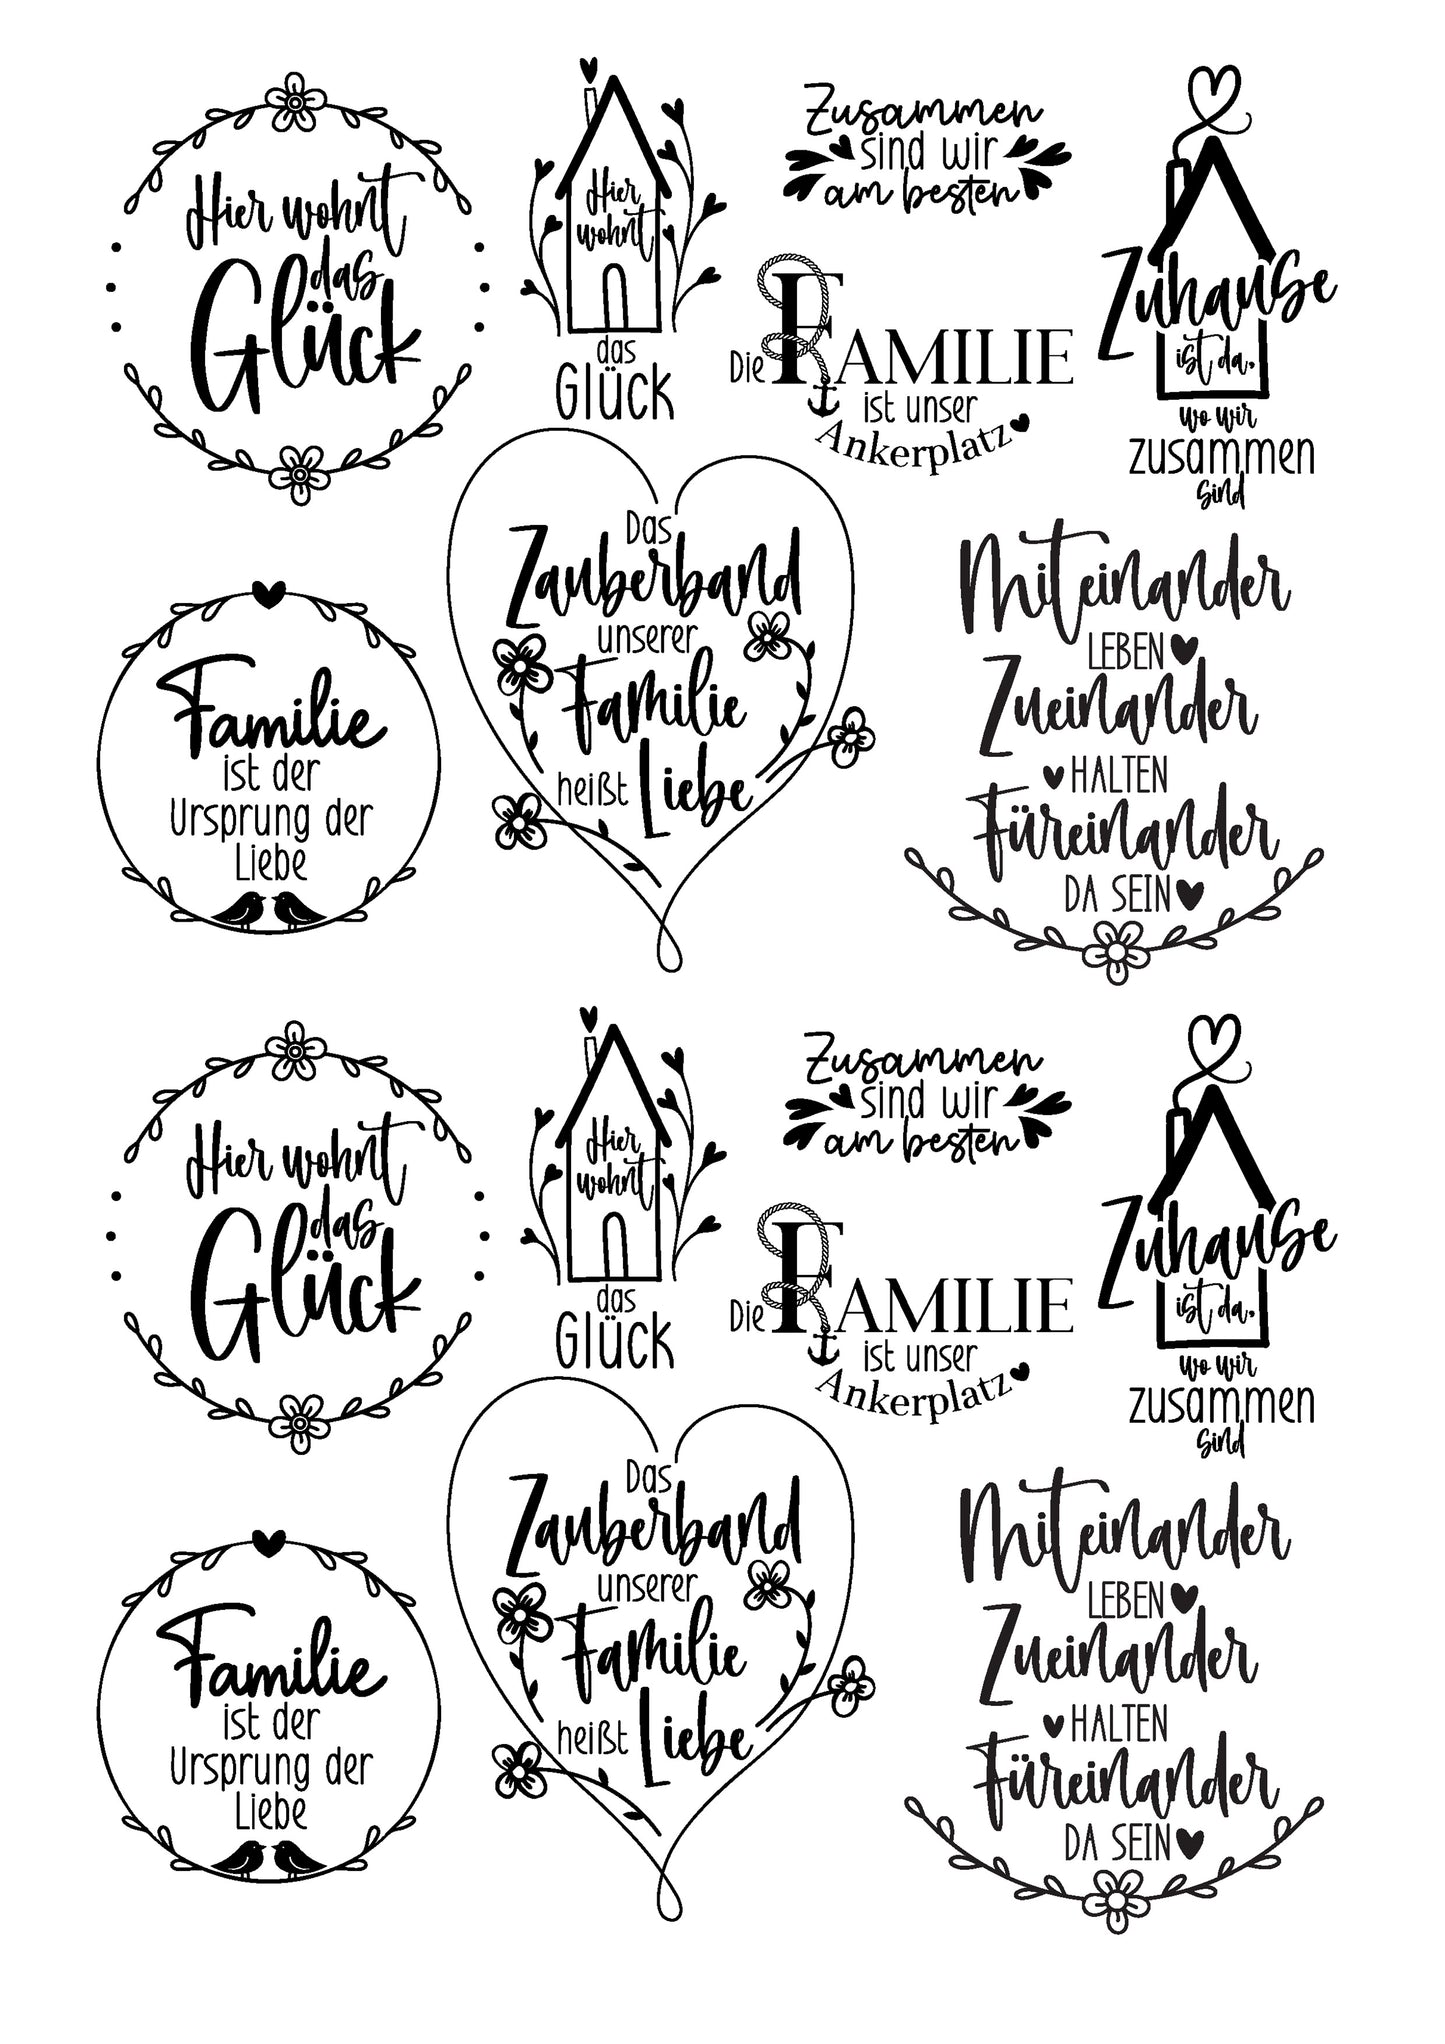 Hier wohnt
das
Glück
Hier
wohnt
das
GLÜCK
Zusammen
sind wir
am besten
Die FAMILIE
ist unser
Ankerplatz
Zuhause
ist da,
wo wir
zusammen
sind
Familie
ist der
Ursprung der
Liebe
Das
Zauberband
unserer
Familie
heißt Liebe
Miteinander
LEBEN
Zueinander
HALTEN
Füreinander
DA SEIN
Hier wohnt
das
Glück
Hier
wohnt
das
GLÜCK
Zusammen
sind wir
am besten
Die FAMILIE
ist unser
Ankerplatz
Zuhause
ist da,
wo wir
zusammen
sind
Familie
ist der
Ursprung der
Liebe
Das
Zauberband
unserer
Familie
heißt Liebe
Miteinander
LEBEN
Zueinander
HALTEN
Füreinander
DA SEIN